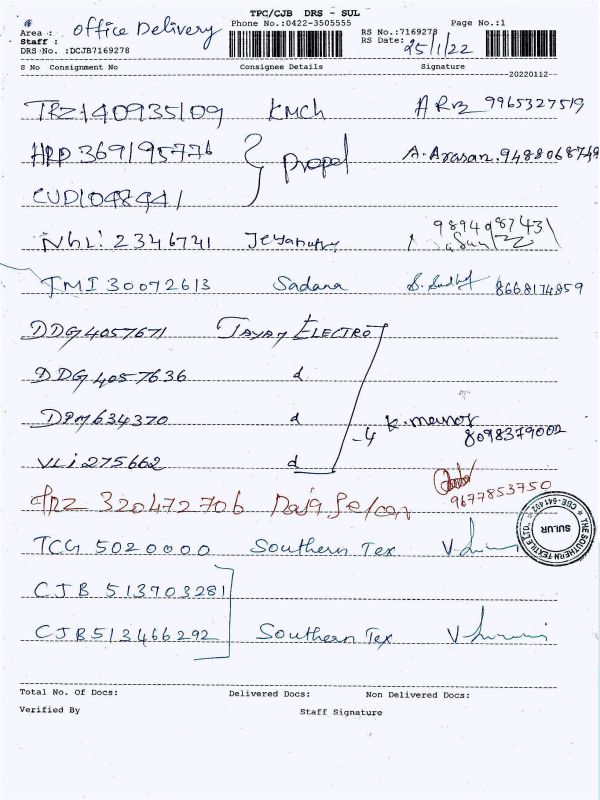 TPC/CJB DRS - SUL
Area : Office Delivery Phone No.:0422-3505555 Page No.:1
Staff : RS No.:7169278
DRS No. :DCJB7169278 RS Date: 25/1/22
S No Consignment No Consignee Details Signature
20220112
TRZ140935109 KMCH 9965327519
HRD 369195776 Propel A. Arasan. 9488068749
CUD1048441
NHL: 2346741
TMI 30072613 Sadana 8668174859
DDG 4057671
DDG 4057636 d
DPM 634370 d K. manoj
-4 8098379002
VLI 275662 d
TRZ 320472706 9677853750
TCG 5020000 Southern Tex
THE SOUTHERN TEXTILE LTD., CBE-641402
SULUR
CJB 513703281
CJB 513466292 Southern Tex
Total No. Of Docs: Delivered Docs: Non Delivered Docs:
Verified By Staff Signature